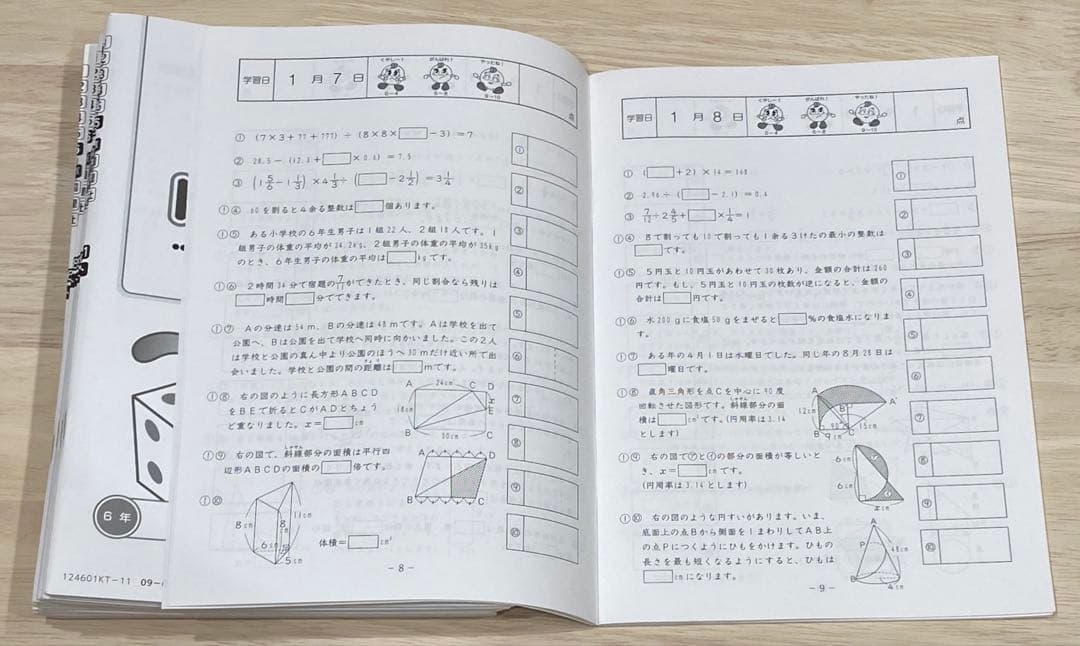 学習日 1月7日 くやしー! がんばれ! やったね! 0~4 5~8 9~10 点
① (7×3+77+777)÷(8×8×□-3)=7
② 28.5-(12.3+□×0.6)=7.5
③ (1 5/6-1 1/3)×4 1/3÷(□-2 1/2)=3 1/4
①④ 60を割ると4余る整数は□個あります。
①⑤ ある小学校の6年生男子は1組22人、2組18人です。1
組男子の体重の平均が34.2kg、2組男子の体重の平均が35kg
のとき、6年生男子の体重の平均は□kgです。
①⑥ 2時間34分で宿題の7/11ができたとき、同じ割合なら残りは
□時間□分でできます。
①⑦ Aの分速は54m、Bの分速は48mです。Aは学校を出て
公園へ、Bは公園を出て学校へ同時に向かいました。この2人
は学校と公園の真ん中より公園のほうへ30mだけ近い所で出
会いました。学校と公園の間の距離は□mです。
きょり
①⑧ 右の図のように長方形ABCD
をBEで折るとCがADとちょう
ど重なりました。x=□cm
A 24cm D
18cm
x
E
B 30cm C
しゃせん
①⑨ 右の図で、斜線部分の面積は平行四
辺形ABCDの面積の□倍です。
A D
B C
①⑩
11cm
8cm
8cm
6cm
5cm
体積=□cm³
① ② ③ ④ ⑤ ⑥ ⑦ ⑧ ⑨ ⑩
-8-
6年
124601KT-11 09-
学習日 1月8日 くやしー! がんばれ! やったね! 0~4 5~8 9~10 点
① (□+2)×14=168
② 2.96÷(□-2.1)=0.4
③ 7/12÷2 4/5+□×1/4=1
①④ 8で割っても10で割っても1余る3けたの最小の整数は
□です。
①⑤ 5円玉と10円玉があわせて30枚あり、金額の合計は260
円です。もし、5円玉と10円玉の枚数が逆になると、金額の
合計は□円です。
①⑥ 水200gに食塩50gをまぜると□%の食塩水になりま
す。
①⑦ ある年の4月1日は水曜日でした。同じ年の8月28日は
□曜日です。
①⑧ 直角三角形を点Cを中心に90度
回転させた図形です。斜線部分の面
積は□cm²です。(円周率は3.14
とします)
しゃせん
A
A'
12cm
B'
90°
15cm
B 9cm C
①⑨ 右の図で㋐と㋑の部分の面積が等しいと
き、x=□cmです。
(円周率は3.14とします)
6cm
6cm
xcm
①⑩ 右の図のような円すいがあります。いま、
底面上の点Bから側面を1まわりしてAB上
の点Pにつくようにひもをかけます。ひもの
長さを最も短くなるようにすると、ひもは
□cmになります。
A
P
48cm
B
4cm
① ② ③ ④ ⑤ ⑥ ⑦ ⑧ ⑨ ⑩
-9-